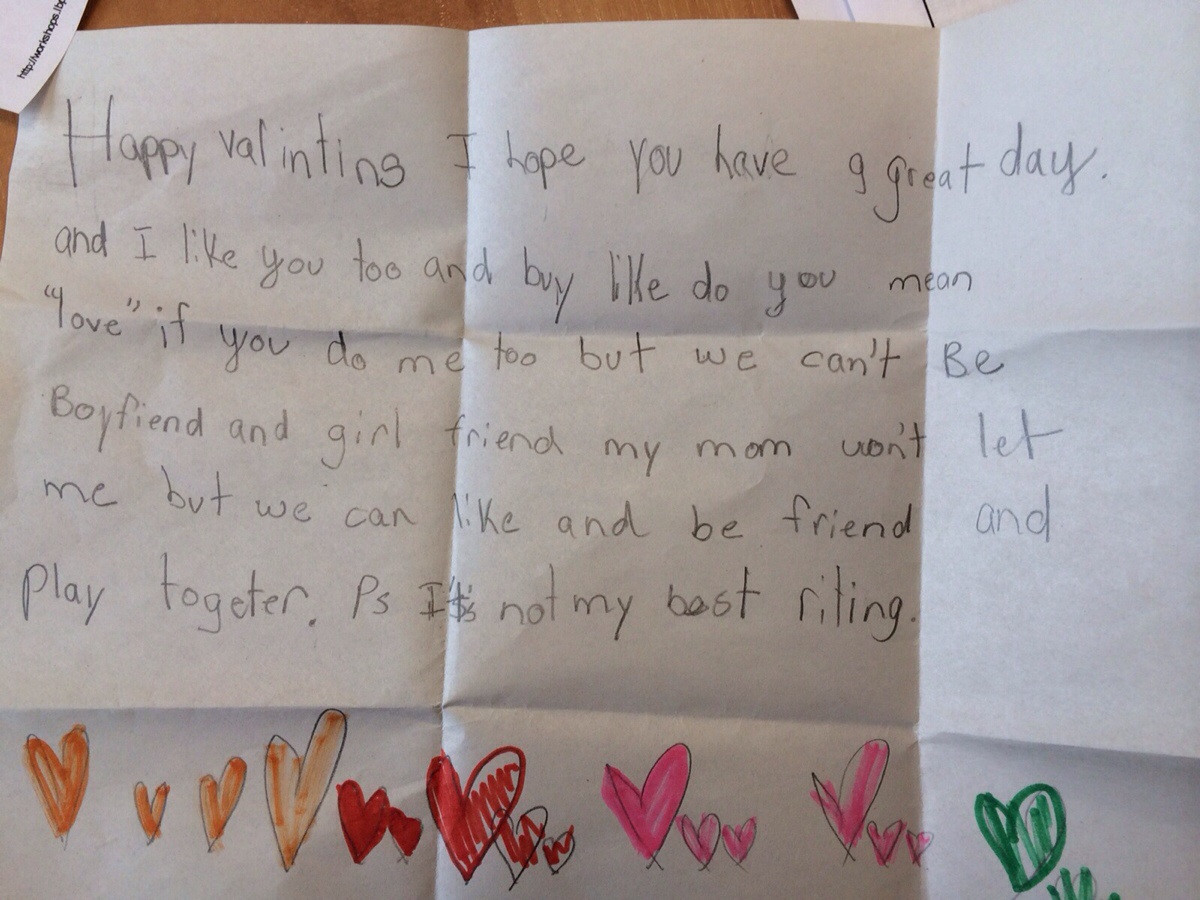 http://workshops.lbp
Happy valintins I hope you have a great day.
and I like you too and buy like do you mean
"love" if you do me too but we can't Be
Boyfiend and girl friend my mom won't let
me but we can like and be friend and
Play togeter. Ps It's not my best riting.